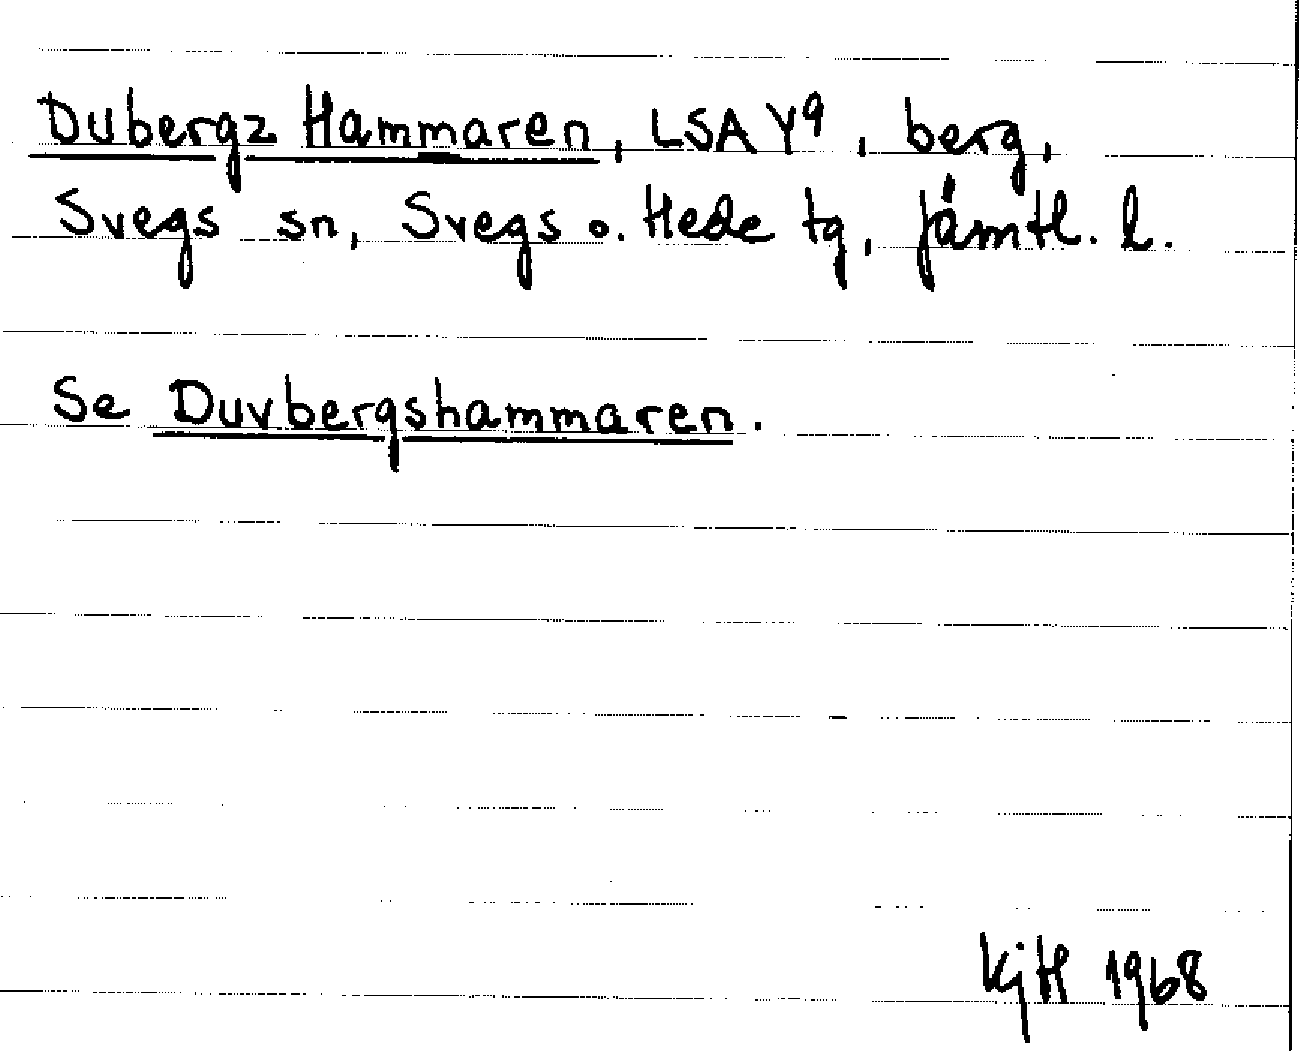 Dubergz Hammaren, LSA Y9, berg,
Svegs sn, Svegs o. Hede tg, Jämtl. l.
Se Duvbergshammaren.
KjH 1968